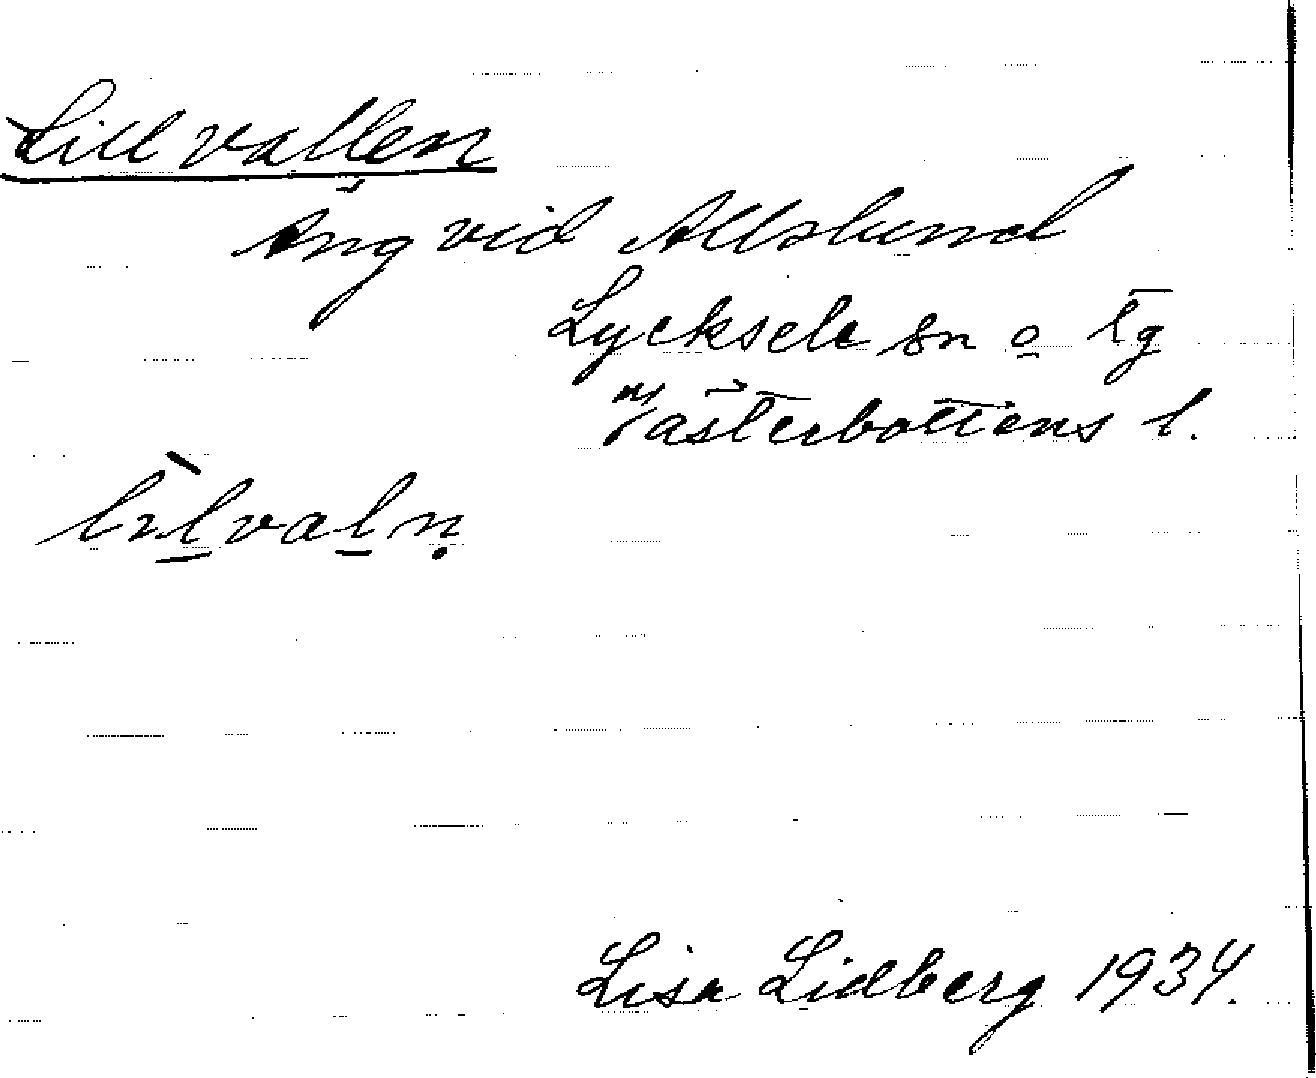 Lillvallen
Äng vid Allslund
Lycksele sn o. tg
Västerbottens l.
Lisa Lidberg 1934.